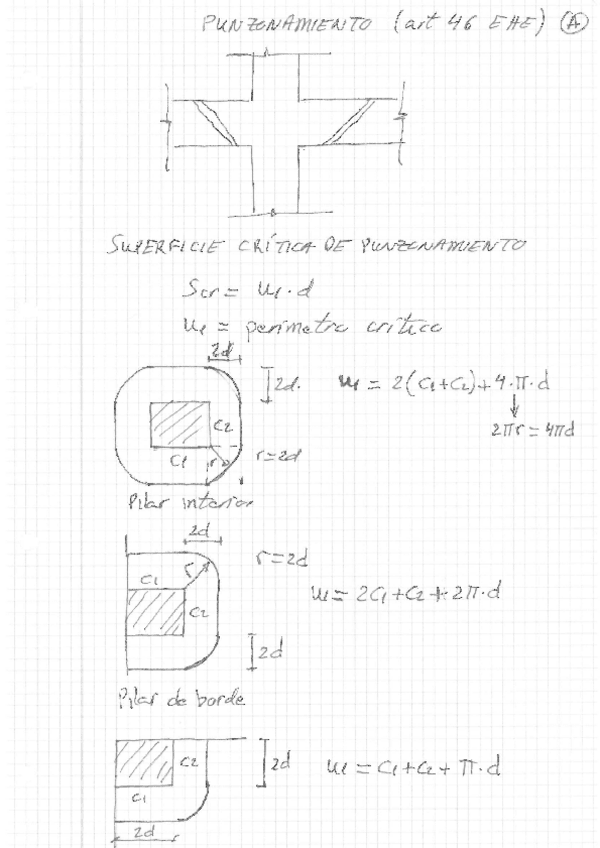 PUNZONAMIENTO (art 46 EHE) A
SUPERFICIE CRÍTICA DE PUNZONAMIENTO
Scr = u1·d
u1 = perímetro crítico
2d
2d.
u1 = 2(C1+C2)+4·π·d
2πr = 4πd
C2
C1
r
r=2d
Pilar interior
2d
r=2d
C1
r
C2
u1 = 2C1+C2+2π·d
2d
Pilar de borde
C2
2d
u1 = C1+C2+π·d
C1
2d